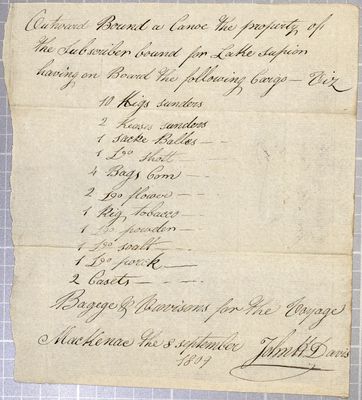 Outward Bound a Canoe the property of
the Subscriber bound for Lake Supiror
having on Board the following Cargo — Viz
10 Kigs sundors
2 Keases sundors
1 Sacke Balles
1 Do shott
4 Bags Corn
2 Do flower
1 Kig tobacco
1 Do powder
1 Do soalt
1 Do porck
2 Casets
Bagege & Purvisons for the Voyage
Mackenac the 8 september
1809 John H Davis